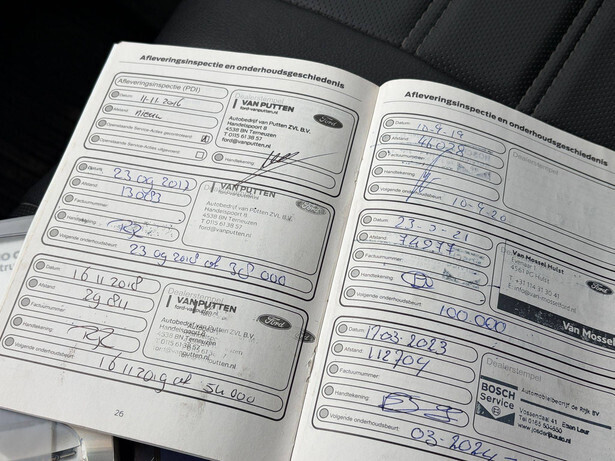 Afleveringsinspectie en onderhoudsgeschiedenis
Afleveringsinspectie (PDI)
Datum: 11.11.2016
Afstand: nieuw
Openstaande Service-Acties gecontroleerd
Openstaande Service-Acties uitgevoerd
Handtekening:
Dealerstempel
VAN PUTTEN
ford-vanputten.nl
Autobedrijf van Putten ZVL B.V.
Handelspoort 8
4538 BN Terneuzen
T 0115 61 38 57
ford@vanputten.nl
Ford
Datum: 23 09 2017
Afstand: 13.083
Factuurnummer:
Handtekening:
Volgende onderhoudsbeurt: 23 09 2018 of 38 000
Dealerstempel
VAN PUTTEN
ford-vanputten.nl
Autobedrijf van Putten ZVL B.V.
Handelspoort 8
4538 BN Terneuzen
T 0115 61 38 57
ford@vanputten.nl
Ford
Datum: 16 11 2018
Afstand: 29 811
Factuurnummer:
Handtekening:
Volgende onderhoudsbeurt: 16 11 2019 of 54 000
Dealerstempel
VAN PUTTEN
ford-vanputten.nl
Autobedrijf van Putten ZVL B.V.
Handelspoort 8
4538 BN Terneuzen
T 0115 61 38 57
Ford
26
Afleveringsinspectie en onderhoudsgeschiedenis
Datum: 10-9-19
Afstand: 46028
Factuurnummer:
Handtekening:
Volgende onderhoudsbeurt: 10-9-20
Dealerstempel
Datum: 23-3-21
Afstand: 74977
Factuurnummer:
Handtekening:
Volgende onderhoudsbeurt: 100.000
Van Mossel Hulst
4561 PG Hulst
T. +31 114 31 30 41
E. info@vanmosselford.nl
Van Mossel
Datum: 17 03-2023
Afstand: 112704
Factuurnummer:
Handtekening:
Volgende onderhoudsbeurt: 03-2024
Dealerstempel
BOSCH
Service
Automobielbedrijf de Rijk BV
Vossendaal 41 Etten Leur